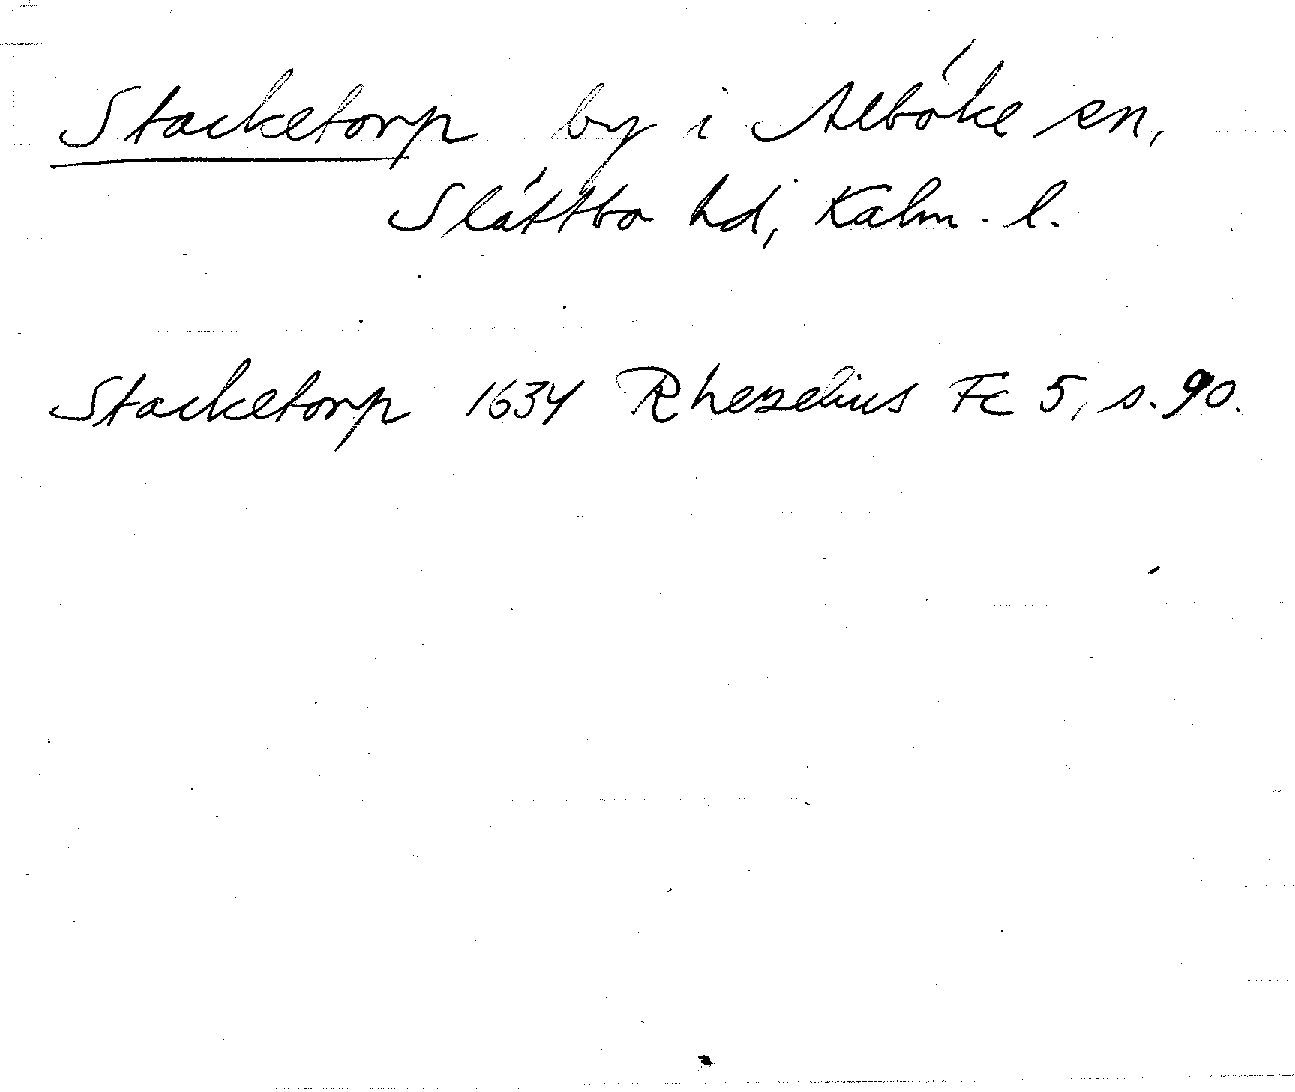 Stacketorp by i Alböke sn,
Slättbo hd, Kalm. l.
Stacketorp 1634 Rhezelius Fc 5, s. 90.